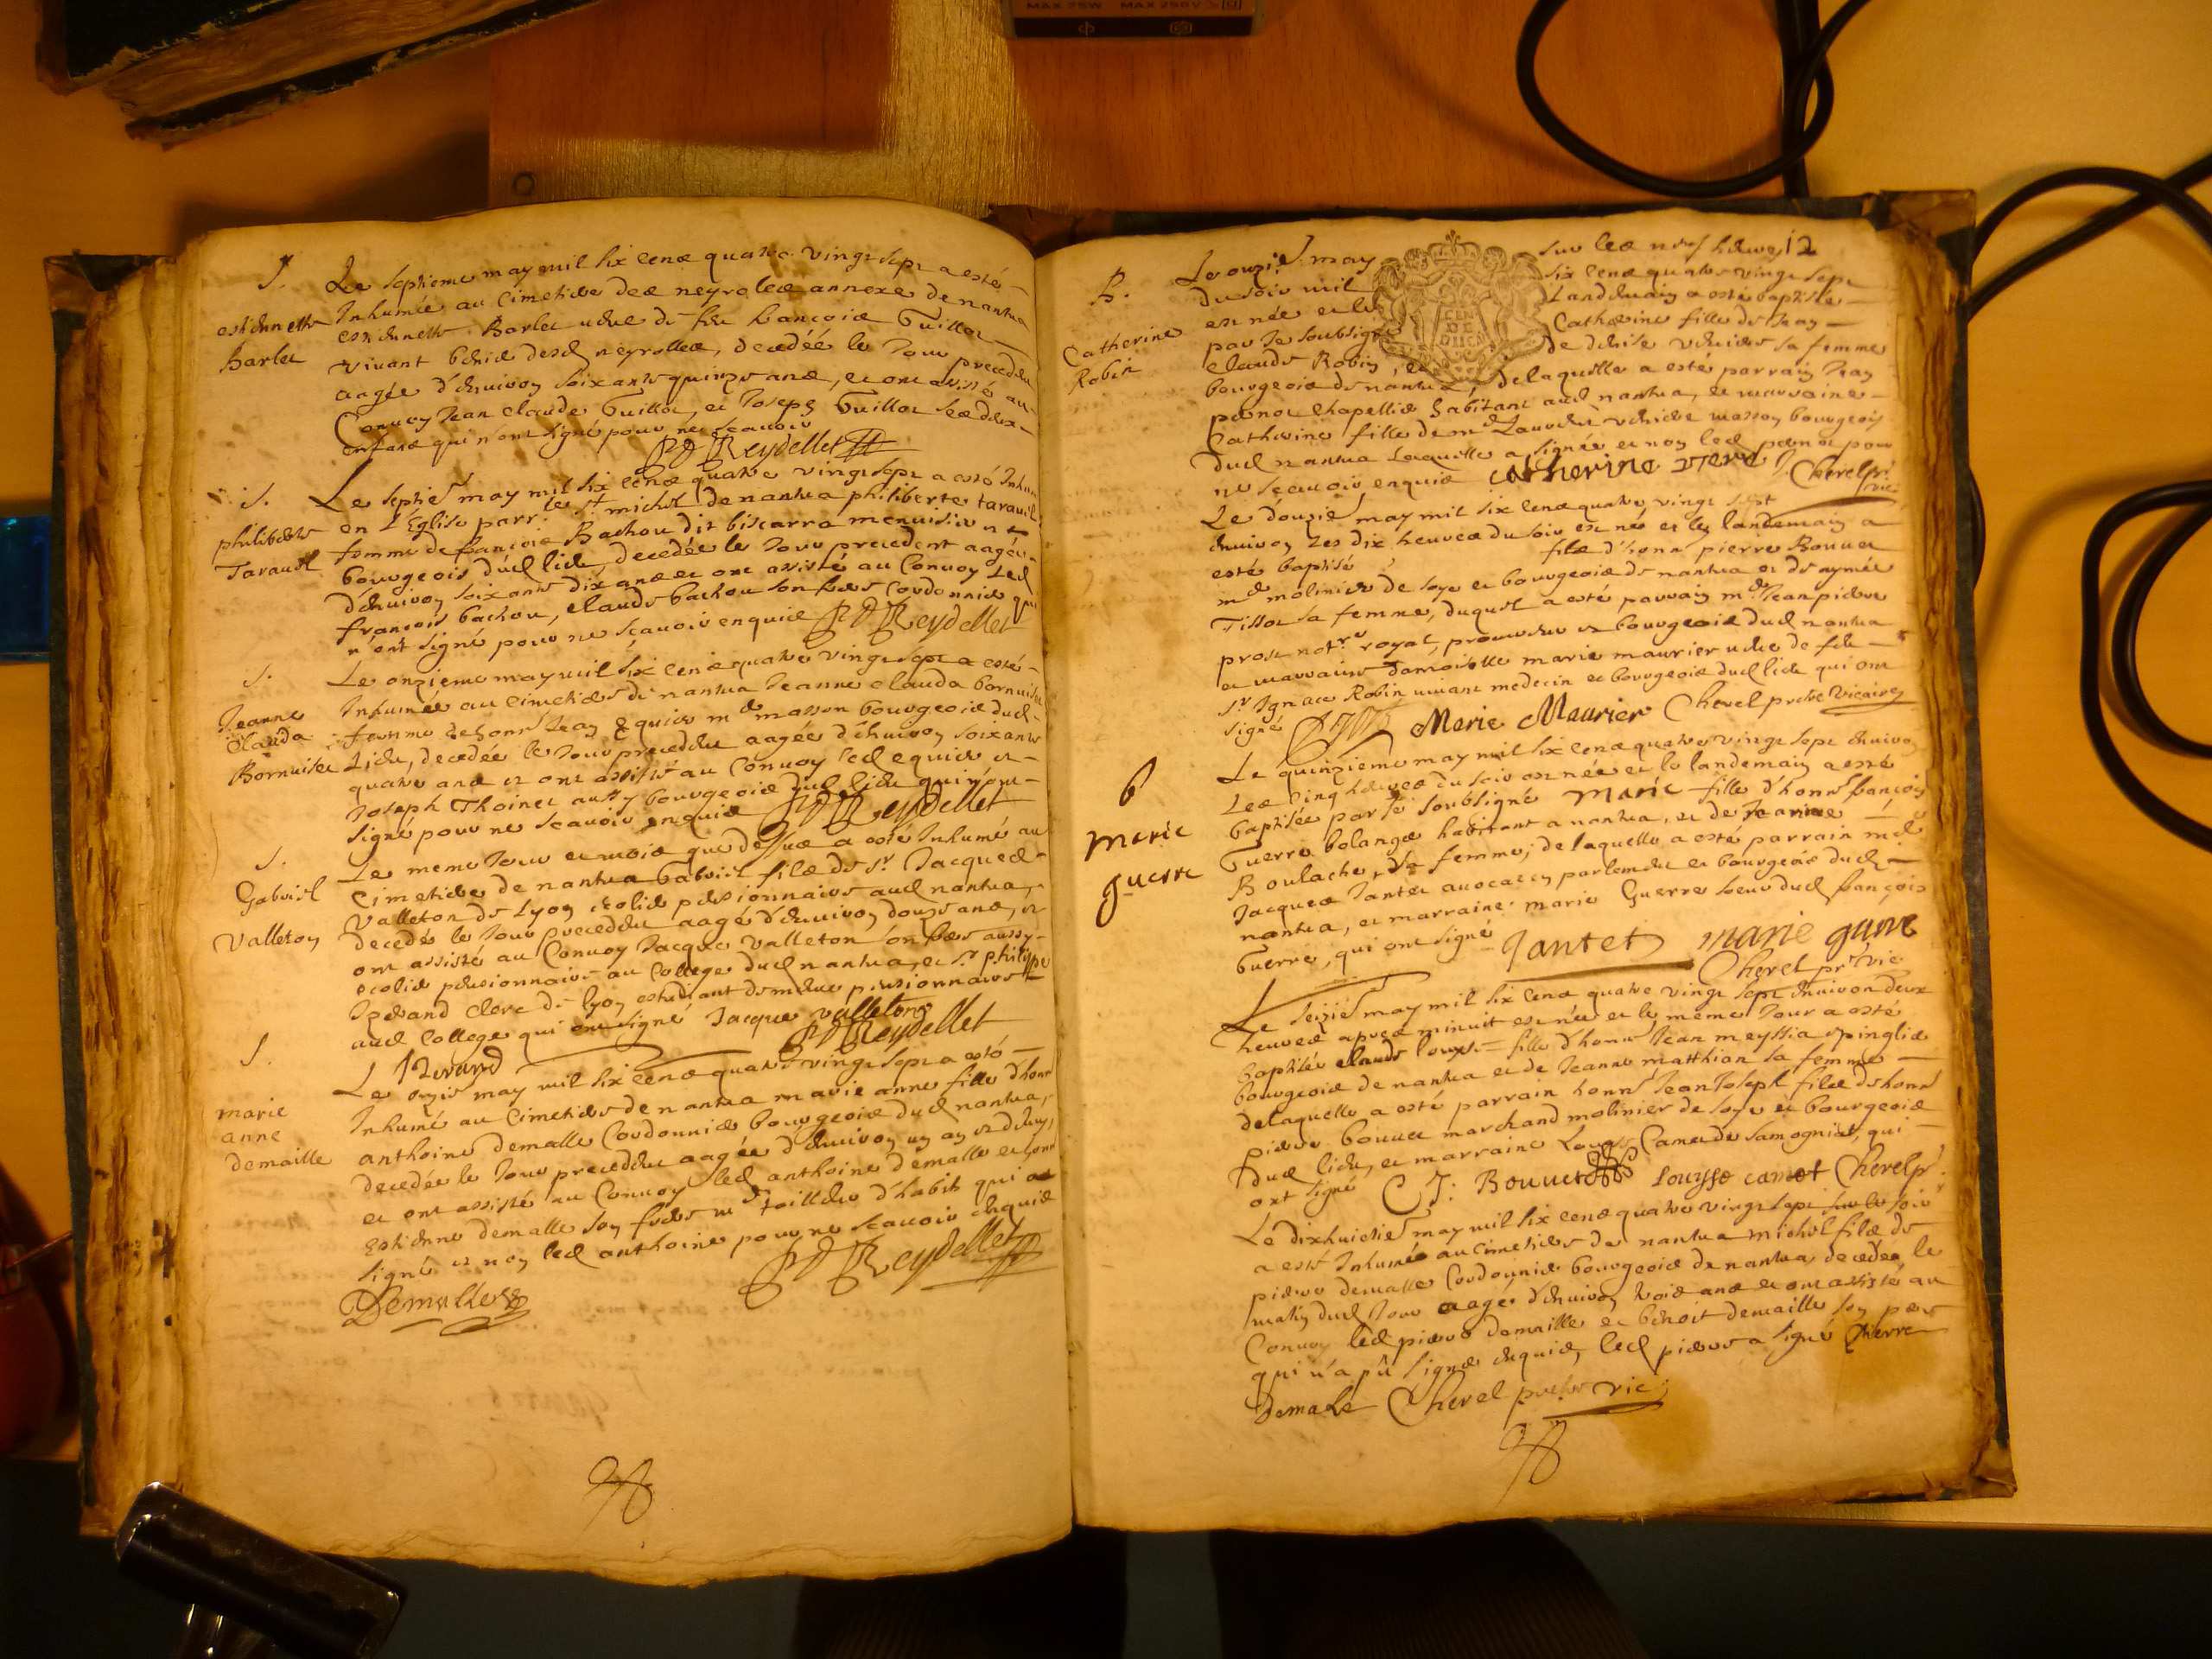 MAX 75W MAX 250V
S.
estiennette
Barlet
Le septieme may mil six cens quatre vingt sept a esté
Inhumée au Cimetiere des neyrolles annexe de nantua
estiennette Barlet vefve de feu francois Guillot
vivant bourgeois desd neyrolles, decedée le Jour precedent
aagée d'environ soixante quinze ans, et ont assisté au
Convoy Jean Claude Guillot, et Joseph Guillot ses deux
enfans qui n'ont signé pour ne scavoir
Reydellet
S.
philiberte
Taravel
Le septie may mil six cens quatre vingt sept a esté Inhu
en l'Eglise parr. le St michel de nantua philiberte taravel
femme de francois Bachou dit biscarra menuisier et
bourgeois dud lieu, decedée le Jour precedent aagée
d'environ soixante dix ans et ont assisté au Convoy led
francois bachou, claude bachou son frere Cordonnier qui
n'ont signé pour ne scavoir enquis Reydellet
S.
Jeanne
Clauda
Bornuiter
Le onzieme may mil six cens quatre vingt sept a esté
Inhumée au cimetiere de nantua Jeanne clauda
femme de honn Jean Equier md masson bourgeois dud
Lieu, decedée le Jour precedent aagée d'environ soixante
quatre ans et ont assisté au Convoy led equier et
Joseph Thoinet aussy bourgeois dud lieu qui n'ont
signé pour ne scavoir enquis Reydellet
S.
Gabriel
Valleton
Le meme Jour et mois que dessus a esté Inhumé au
Cimetiere de nantua Gabriel fils de sr Jacques
Valleton de Lyon ecolier pensionnaire aud nantua,
decedé le Jour precedent aagé d'environ douze ans, et
ont assisté au Convoy Jacque valleton son frere aussy
ecolier pensionnaire au College dud nantua, et sr philippe
Iverand clerc de lyon estudiant de meme pensionnaire
aud College qui ont signé Jacque valleton
Iverand Reydellet
S.
marie
anne
demaille
Le onzie may mil six cens quatre vingt sept a esté
Inhumé au Cimetiere de nantua marie anne fille d'honn
anthoine demalle Cordonnier bourgeois dud nantua,
decedée le Jour precedent aagée d'environ un an et demy,
et ont assisté au Convoy led anthoine demalle et honn
Estienne demalle son frere md tailleur d'habit qui a
signé et non led anthoine pour ne scavoir enquis
Demalle Reydellet
12
B.
Catherine
Robin
Le onzie may sur les neuf heures
du soir mil six cens quatre vingt sept
est née et le Landemain a esté baptisée
par Je soubsigné Catherine fille de Jean
claude Robin, et de denise sa femme
bourgeois de nantua, de laquelle a esté parrain Jean
pernot Chapellier habitant aud nantua, et marraine
Catherine fille de md masson bourgeois
dud nantua Laquelle a signée et non led pernot pour
ne scavoir enquis catherine Cherel pr vic
Le douzie may mil six cens quatre vingt sept
environ les dix heures du soir est né et le landemain a
esté baptisé fils d'honn pierre Bouuet
md molinier de soye et bourgeois de nantua et de aymée
Tissot sa femme, duquel a esté parrain mr Jean pierre
prost notre royal, procureur et bourgeois dud nantua
et marraine damoiselle marie maurier vefve de feu
sr Ignace Robin vivant medecin et bourgeois dud lieu qui ont
signé Marie Maurier Cherel prebtre vicaire
b
marie
guerre
Le quinzieme may mil six cens quatre vingt sept environ
Les cinq heures du soir est née et le landemain a esté
baptisée par Je soubsigné Marie fille d'honn francois
Guerre bolanger habitant a nantua, et de Jeanne
Boulache, sa femme; de laquelle a esté parrain
Jacques Jantet avocat en parlement et bourgeois dud
nantua, et marraine marie Guerre soeur dud francois
Guerre, qui ont signé Jantet marie guerre
Cherel pr vic
Le seizie may mil six cens quatre vingt sept environ deux
heures apres minuit est née et le meme Jour a esté
baptisée claude louyse fille d'honn Jean meyssia epinglier
bourgeois de nantua et de Jeanne matthian sa femme
de laquelle a esté parrain honn Jean Joseph fils de honn
pierre bouuet marchand molinier de soye et bourgeois
dud lieu, et marraine Louyse Camet de Samogniat, qui
ont signé J: Bouuet Louysse camet Cherel pr
Le dixhuictie may mil six cens quatre vingt sept sur le soir
a esté Inhumé au cimetiere de nantua michel fils de
pierre demalle Cordonnier bourgeois de nantua, decedé le
matin dud Jour aagé d'environ trois ans et ont assisté au
Convoy led pierre demaille et benoit demaille son pere
qui n'a pû signer enquis, led pierre a signé Pierre
Demalle Cherel prebtre vic